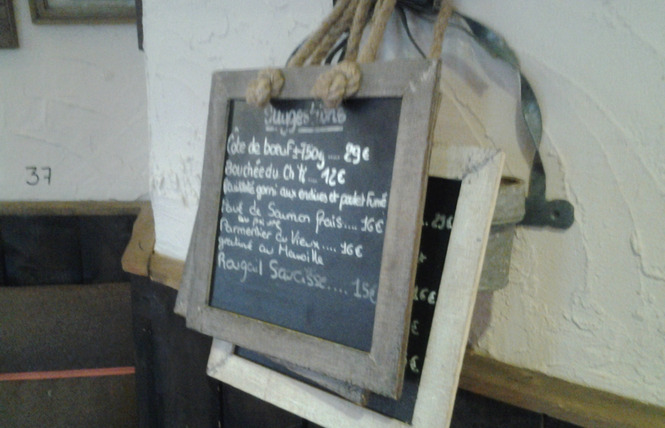 37
Suggestions
Côte de boeuf ± 750g .... 29€
Bouchée du Ch'ti .... 12€
garni aux endives et poulet fumé
Pavé de Saumon frais .... 16€
Parmentier au Vieux .... 16€
gratiné au Maroille
Rougail Saucisse .... 15€
16€
€
€